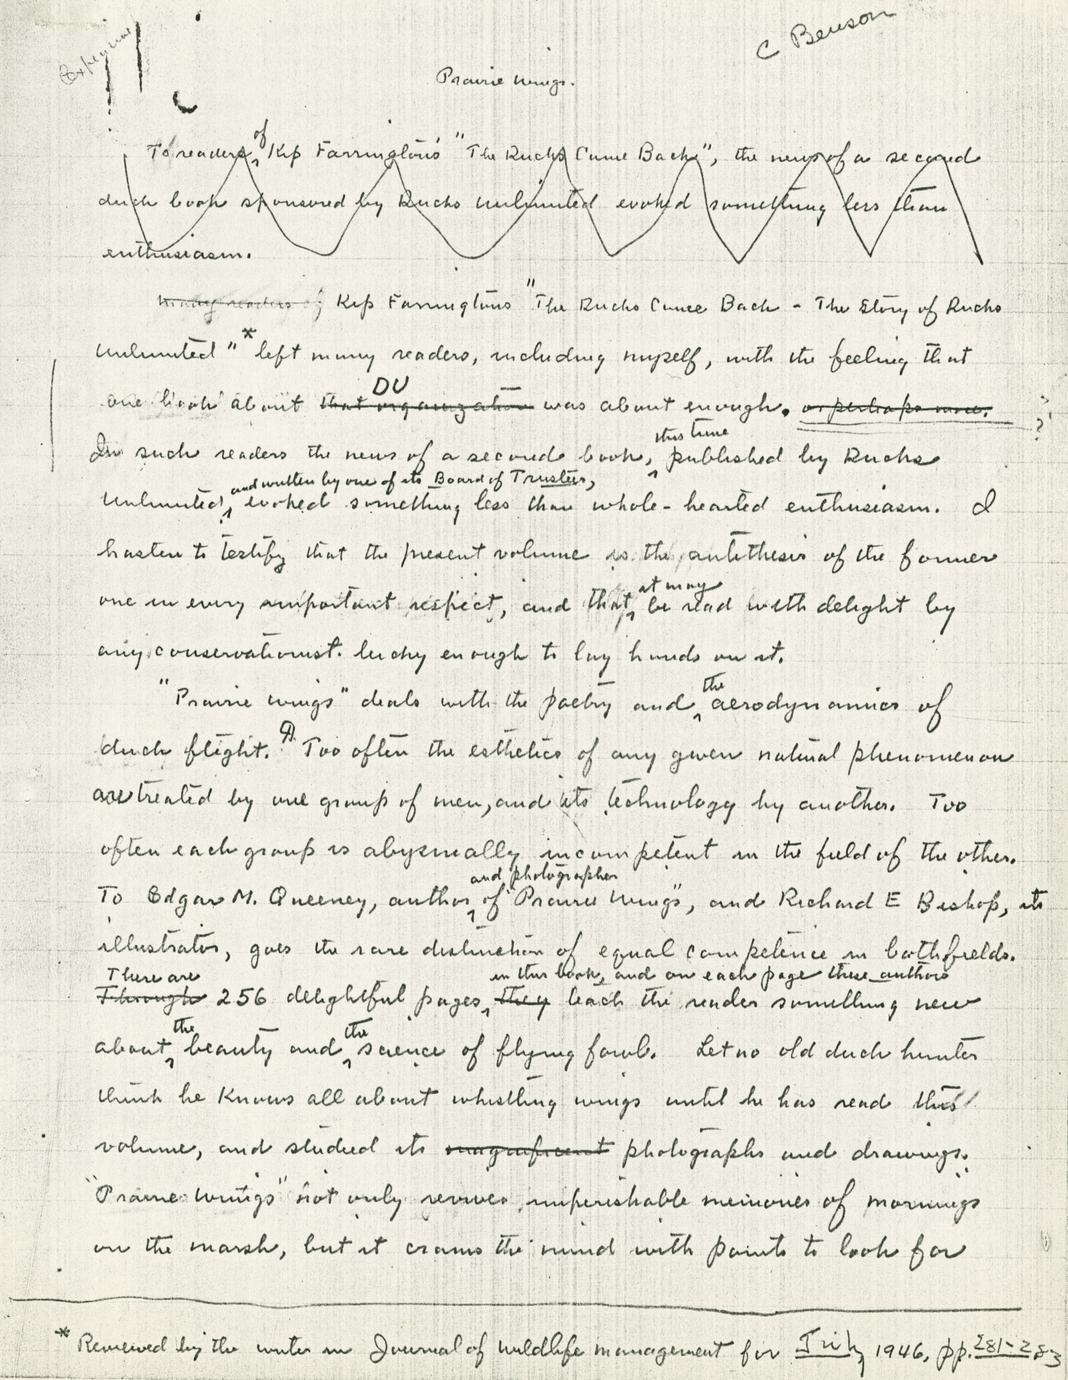 C Benson
Prairie Wings.
To readers of Kip Farrington's "The Ducks Came Back", the news of a second
duck book sponsored by Ducks Unlimited evoked something less than
enthusiasm.
Many readers of Kip Farrington's "The Ducks Came Back - The Story of Ducks
Unlimited"* left many readers, including myself, with the feeling that
DU
one book about that organization was about enough. or perhaps more.
this time
In such readers the news of a second book, published by Ducks
and written by one of its Board of Trustees,
Unlimited, evoked something less than whole-hearted enthusiasm. I
hasten to testify that the present volume is the antithesis of the former
it may
one in every important respect, and that be read with delight by
any conservationist lucky enough to lay hands on it.
the
"Prairie Wings" deals with the poetry and aerodynamics of
duck flight. ¶ Too often the esthetics of any given natural phenomenon
are treated by one group of men, and its technology by another. Too
often each group is abysmally incompetent in the field of the other.
and photographer
To Edgar M. Queeney, author of "Prairie Wings", and Richard E Bishop, its
illustrator, goes the rare distinction of equal competence in both fields.
There are in this book, and on each page these authors
Through 256 delightful pages, they teach the reader something new
the the
about beauty and science of flying fowl. Let no old duck hunter
think he knows all about whistling wings until he has read this
volume, and studied its magnificent photographs and drawings.
"Prairie Wings" not only revives imperishable memories of mornings
on the marsh, but it crams the mind with points to look for
* Reviewed by the writer in Journal of Wildlife Management for July 1946, pp. 281-283